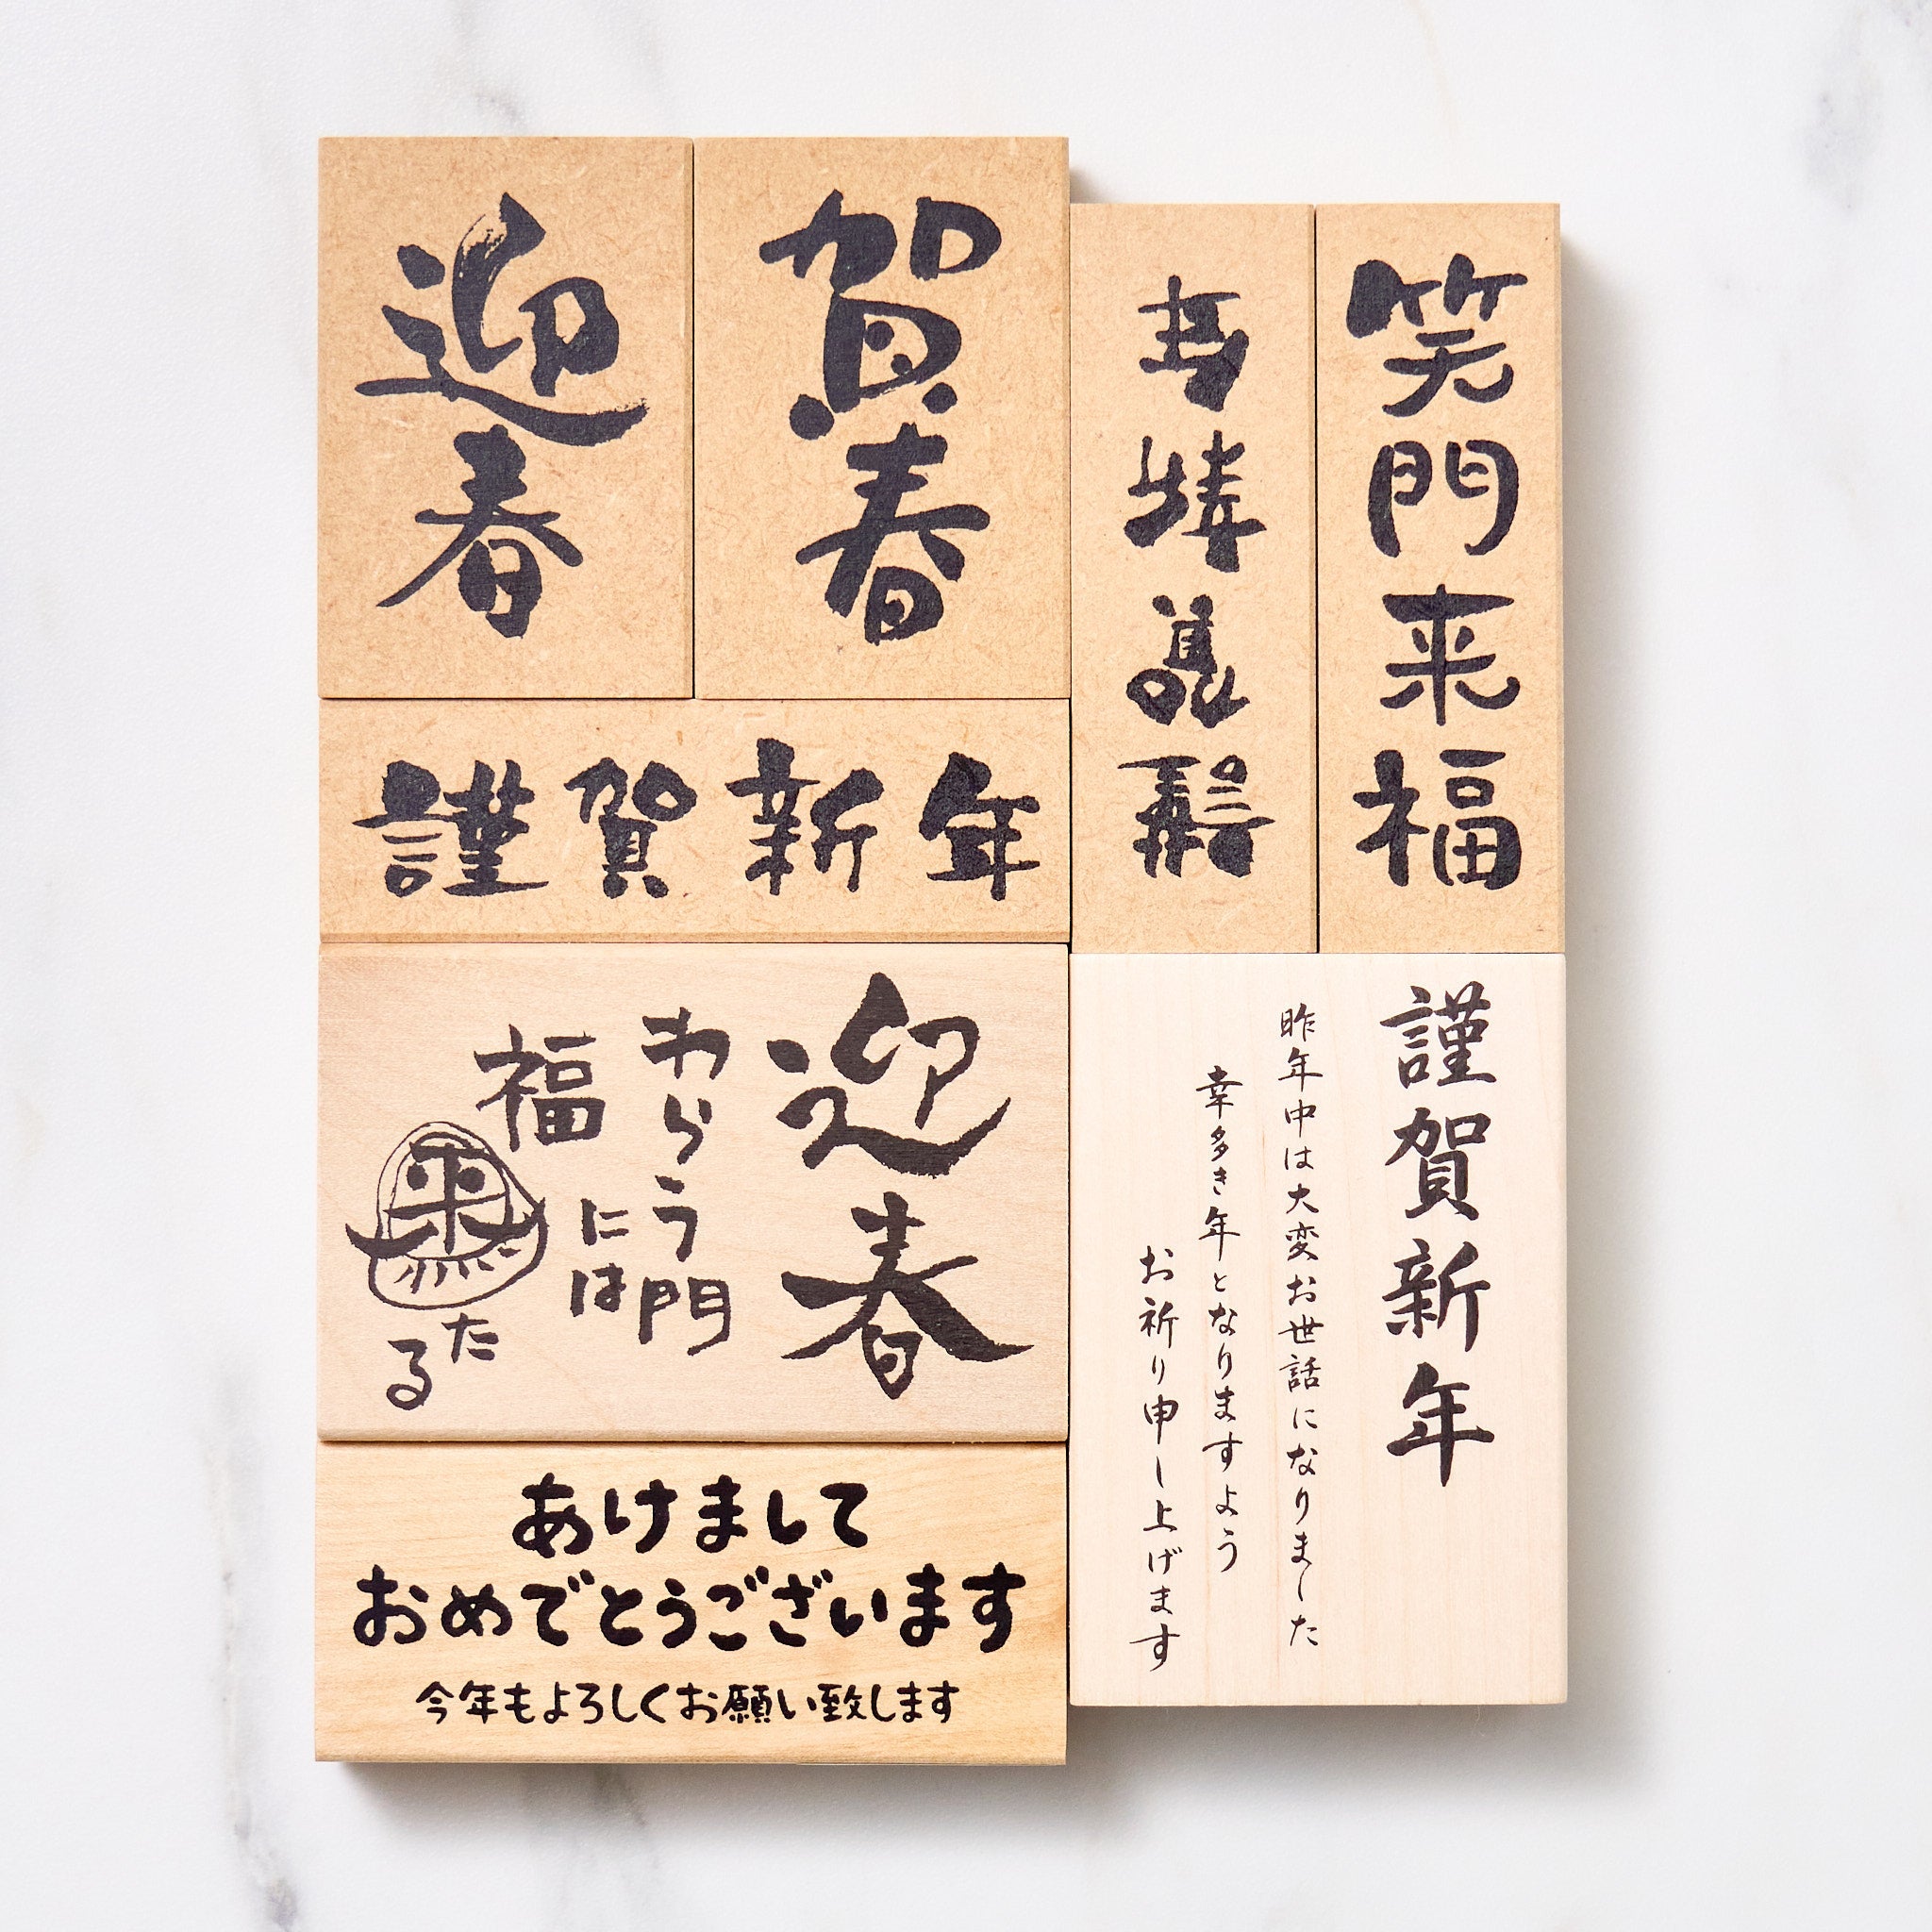 迎春
賀春
笑門来福
謹賀新年
迎春
わらう門
には
福
来
たる
謹賀新年
昨年中は大変お世話になりました
幸多き年となりますよう
お祈り申し上げます
あけまして
おめでとうございます
今年もよろしくお願い致します